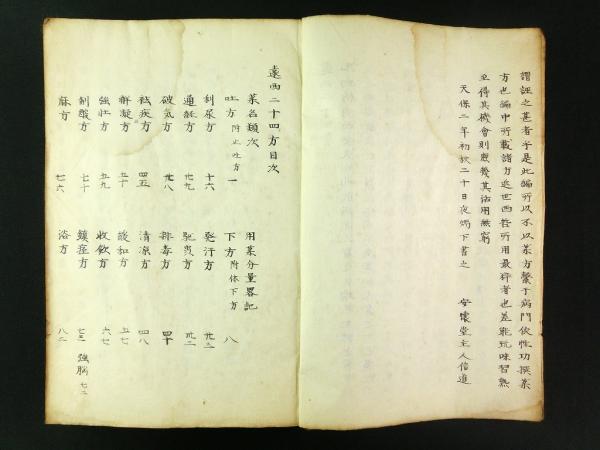 謂誣之甚者乎是此編所以不以某方繫于病門依性功撰薬
方也編中所載諸方近世西哲所用最粹者也若能玩味習熟
至得其機會則其活用無窮
天保二年初秋二十日夜燭下書之 安懷堂主人信道
遠西二十四方目次
薬名類次 用薬分量畧記
吐方 附止吐方 一 下方 附休下方 八
利尿方 十六 発汗方 廿三
通経方 廿九 駆虫方 卅二
破気方 卅八 排毒方 四十
袪痰方 四五 清凉方 四八
解凝方 五十 緩和方 五七
強壮方 五九 收斂方 六七
制酸方 七十 鎮痙方 七三 強脳 七二
麻方 七六 浴方 八二